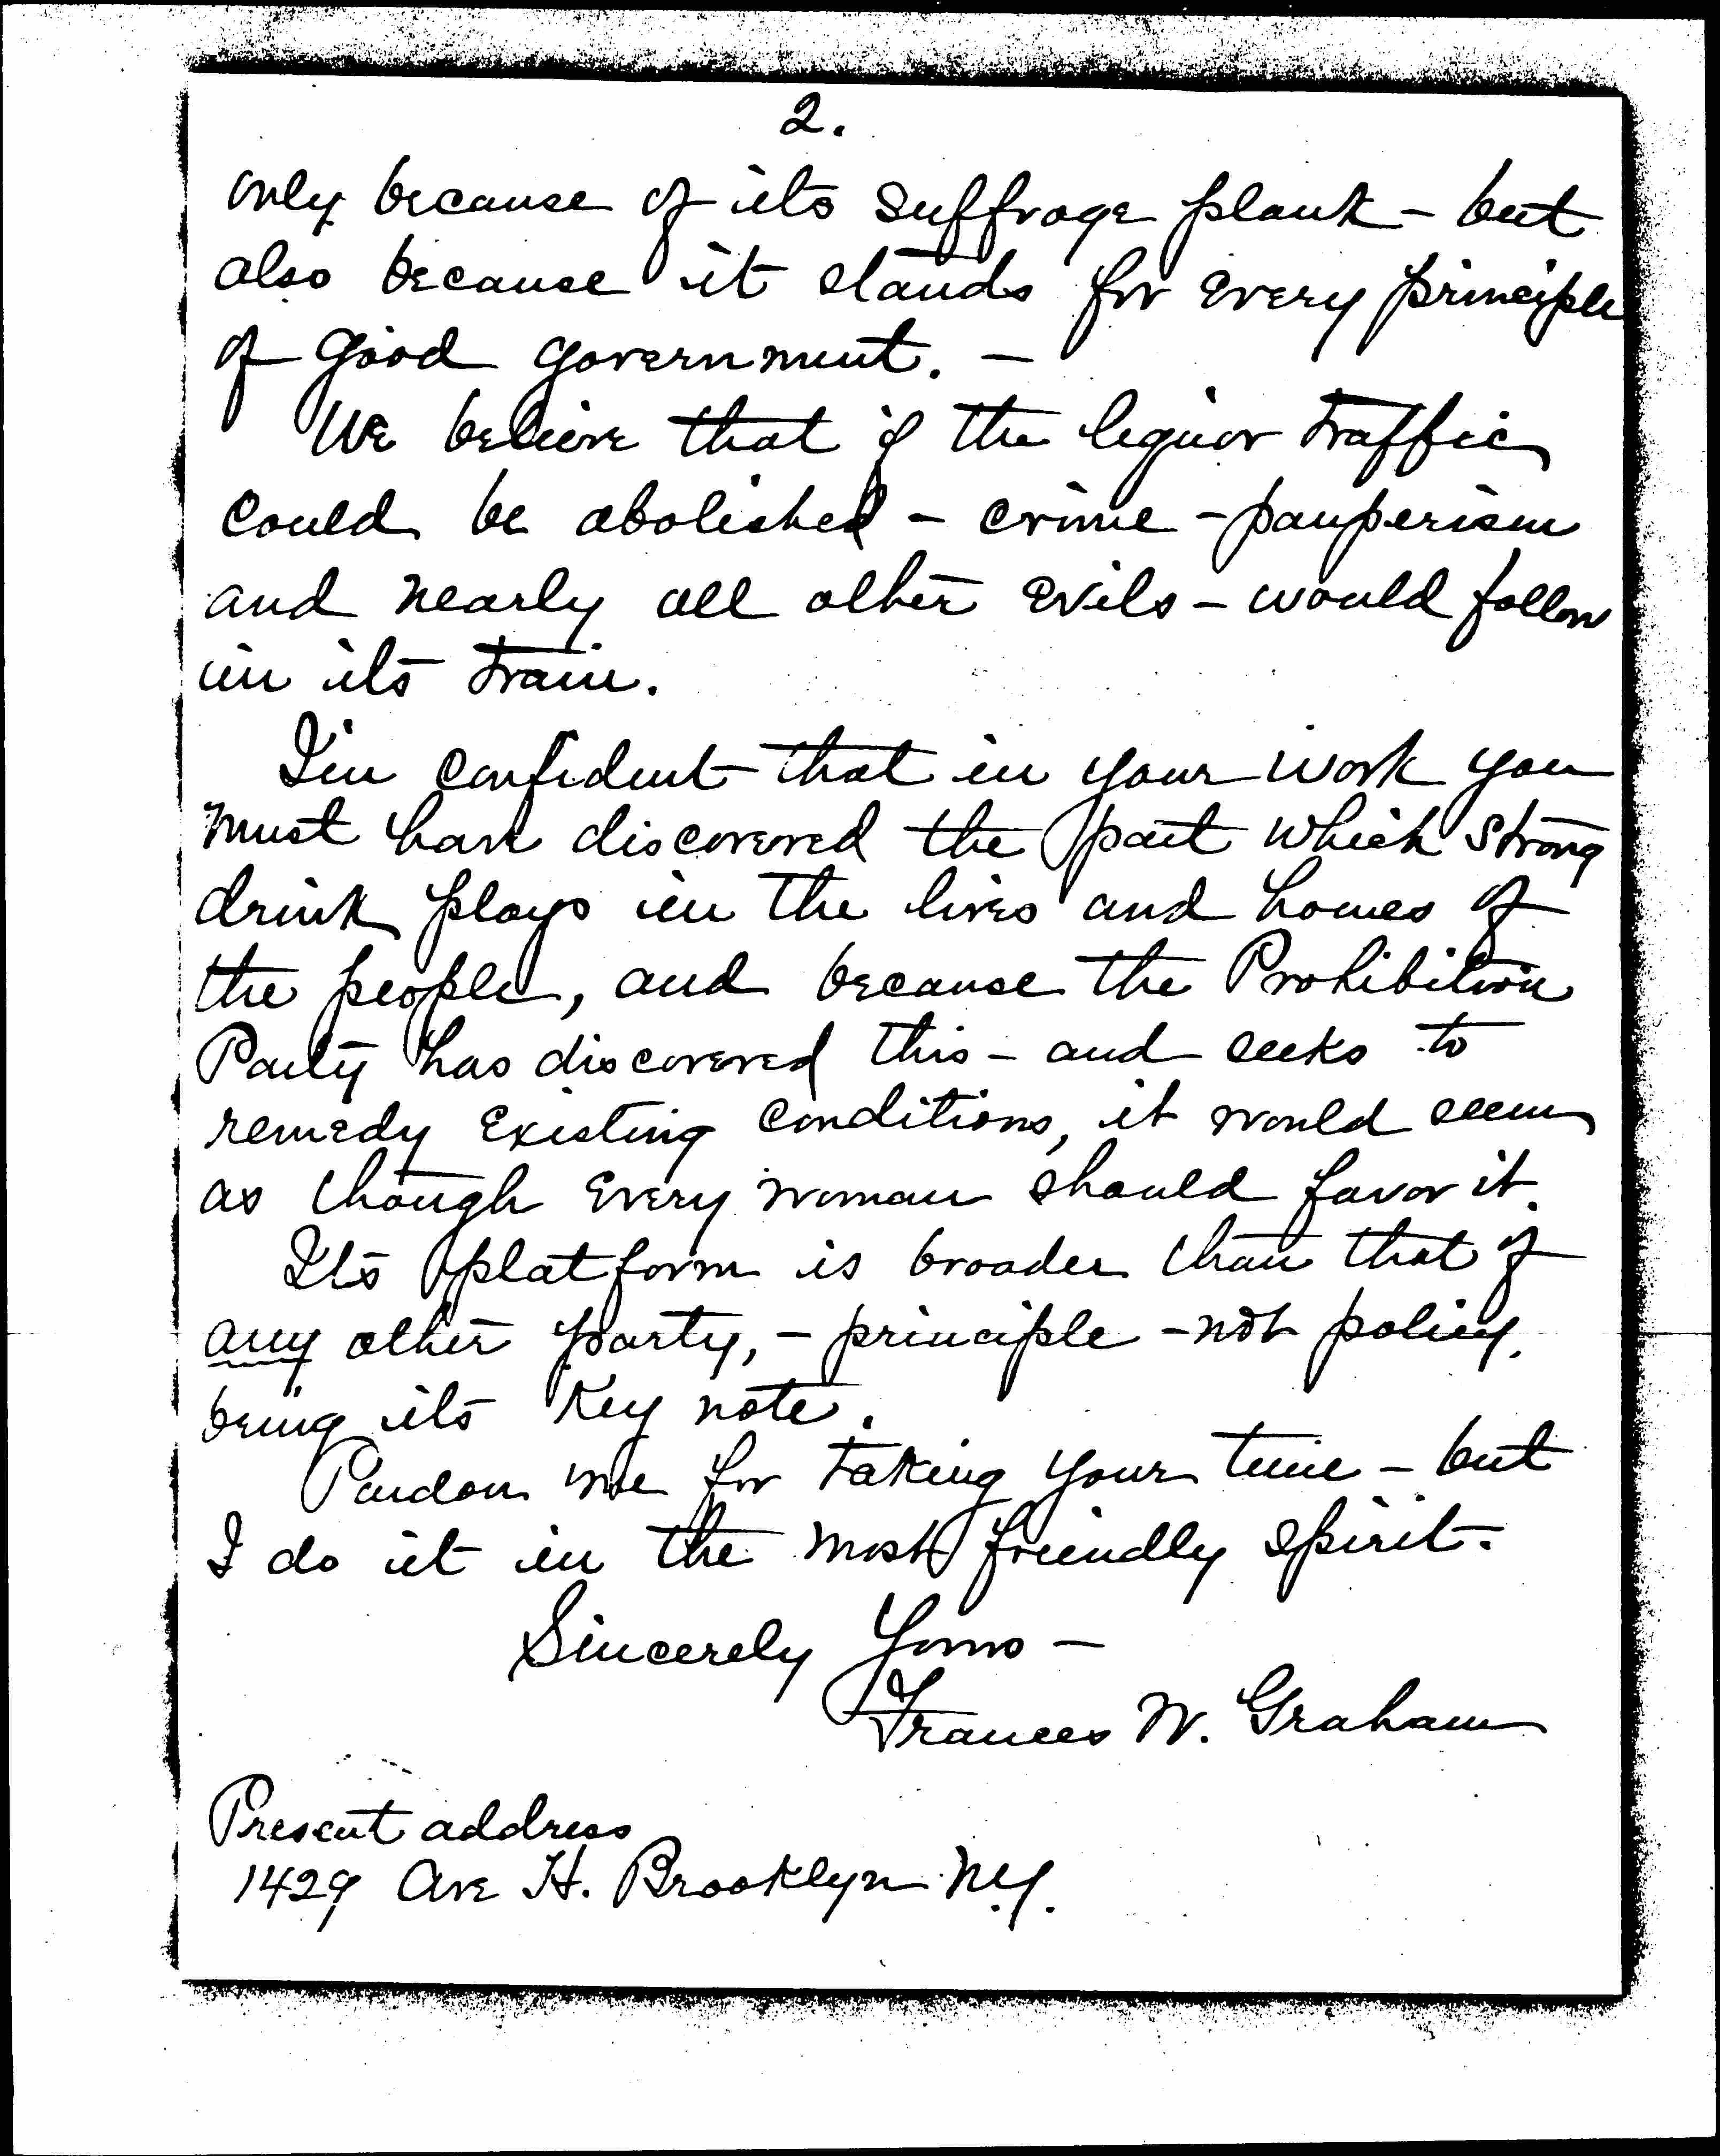 2.
only because of its suffrage plank - but
also because it stands for every principle
of good government. -
We believe that if the liquor traffic
could be abolished - crime - pauperism
and nearly all other evils - would follow
in its train.
I'm confident that in your work you
must have discovered the part which strong
drink plays in the lives and homes of
the people, and because the Prohibition
Party has discovered this - and seeks to
remedy existing conditions, it would seem
as though every woman should favor it.
Its platform is broader than that of
any other party, - principle - not policy,
being its key note.
Pardon me for taking your time - but
I do it in the most friendly spirit -
Sincerely Yours -
Frances W. Graham
Present address
1429 Ave H. Brooklyn N.Y.